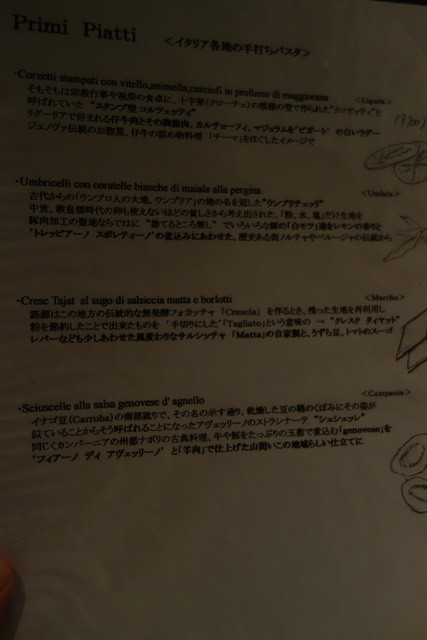 Primi Piatti
<イタリア各地の手打ちパスタ>
・Corzetti stampati con vitello,animella,carciofi in profumo di maggiorana
<Liguria>
そもそもは宗教行事や祝祭の食卓に、十字架(クローチェ)の模様の型で作られた"クロゼッティ"と
呼ばれていた "スタンプ型 コルツェッティ"
リグーリアで好まれる仔牛肉とその胸腺肉、カルチョーフィ、マジョラムを"ビガート" の白いラグー
ジェノヴァ伝統のお惣菜、仔牛の詰め物料理 「チーマ」をほぐしたイメージで
・Umbricelli con coratelle bianche di maiale alla pergina
<Umbria>
古代からの「ウンブロ人の大地、ウンブリア」の地の名を冠した"ウンブリチェッリ"
中世、教皇領時代の卵も使えないほどの貧しさから考え出された、「粉、水、塩」だけ生地を
豚肉加工の聖地ならではに "捨てるところ無し" でいろいろな豚の「白モツ」達をレモンの香りと
"トレッビアーノ スポレティーノ"の煮込みにあわせた、歴史ある街ノルチャやペルージャの伝統から
・Cresc Tajat al sugo di salsiccia matta e borlotti
<Marche>
語源はこの地方の伝統的な無発酵フォカッチャ 「Crescia」 を作るとき、残った生地を再利用し
粉を節約したことで出来たものを 「手切りにした」「Tagliato」という意味の → "クレスタ タイヤット"
レバーなども少しあわせた風変わりなサルシッチャ 「Matta」の自家製と、うずら豆、トマトのスーゴ
・Sciuscelle alla salsa genovese d' agnello
<Campania>
イナゴ豆(Carruba)の南部訛りで、その名の示す通り、乾燥した豆の鞘のくぼみにその姿が
似ていることからそう呼ばれることになったアヴェッリーノのストランナーテ "シュシェッレ"
同じくカンパーニアの州都ナポリの古典料理、牛や豚をたっぷりの玉葱で煮込む「genovese」を
"フィアーノ ディ アヴェッリーノ" と「羊肉」で仕上げた山間いこの地域らしい仕立てに